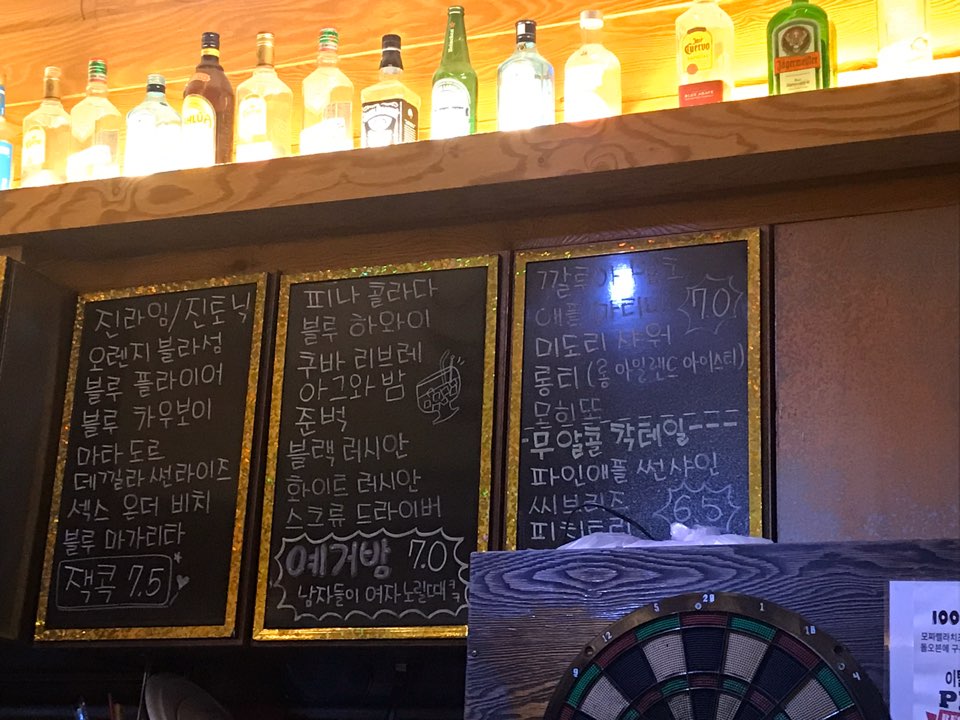 진라임/진토닉
오렌지 블라섬
블루 플라이어
블루 카우보이
마타도르
데낄라 썬라이즈
섹스 온더 비치
블루 마가리타
잭콕 7.5
피나 콜라다
블루 하와이
쿠바 리브레
아그와 밤
준벅
블랙 러시안
화이트 러시안
스크류 드라이버
예거밤 7.0
남자들이 여자노릴때 ㅋ
깔루아
애플
7.0
미도리 샤워
롱티 (롱 아일랜드 아이스티)
모히또
무알콜 칵테일
파인애플 썬샤인
씨브리즈
6.5
Jose Cuervo
Jägermeister
Heineken
5 20 1
12 18
9 4
100